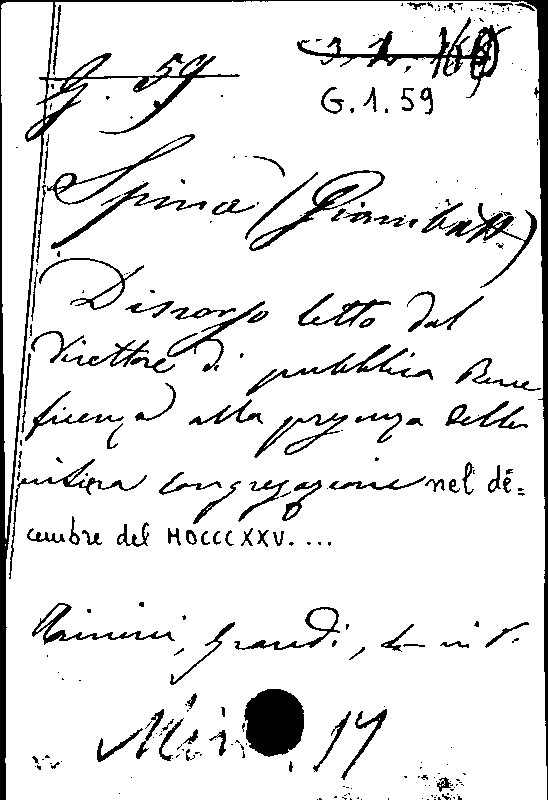 G. 59
G.1.59
Spina (Giambatt.)
Discorso letto dal
Direttore di pubblica Bene
ficenza alla presenza della
intiera Congregazione nel dé=
cembre del MDCCCXXV....
Rimini, Grandi, in 8.
Mis. 17